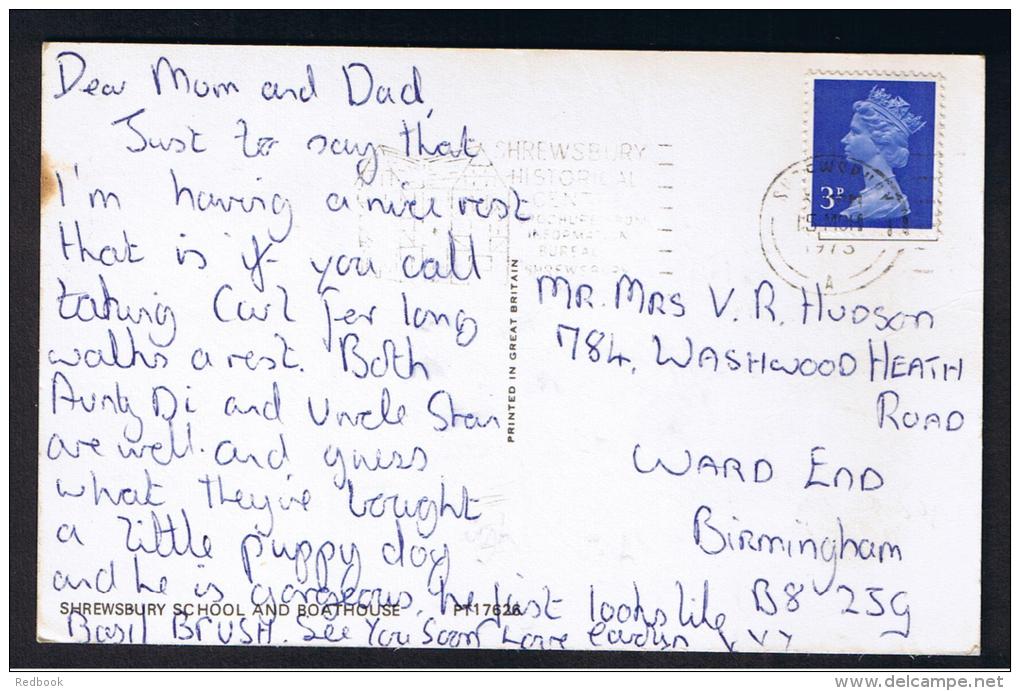 Dear Mum and Dad,
Just to say that
I'm having a nice rest
that is if you call
taking Carl for long
walks a rest. Both
Aunty Di and Uncle Stan
are well. and guess
what they've bought
a little puppy dog
and he is gorgeous, he just looks like
Basil BRUSH. See You Soon Love
SHREWSBURY SCHOOL AND BOATHOUSE PT17626
PRINTED IN GREAT BRITAIN
SHREWSBURY
HISTORICAL
INFORMATION
BUREAU
SHREWSBURY
3P
1973
A
MR. MRS V. R. HUDSON
784, WASHWOOD HEATH
ROAD
WARD END
Birmingham
B8 2SG
Redbook
delcampe.net